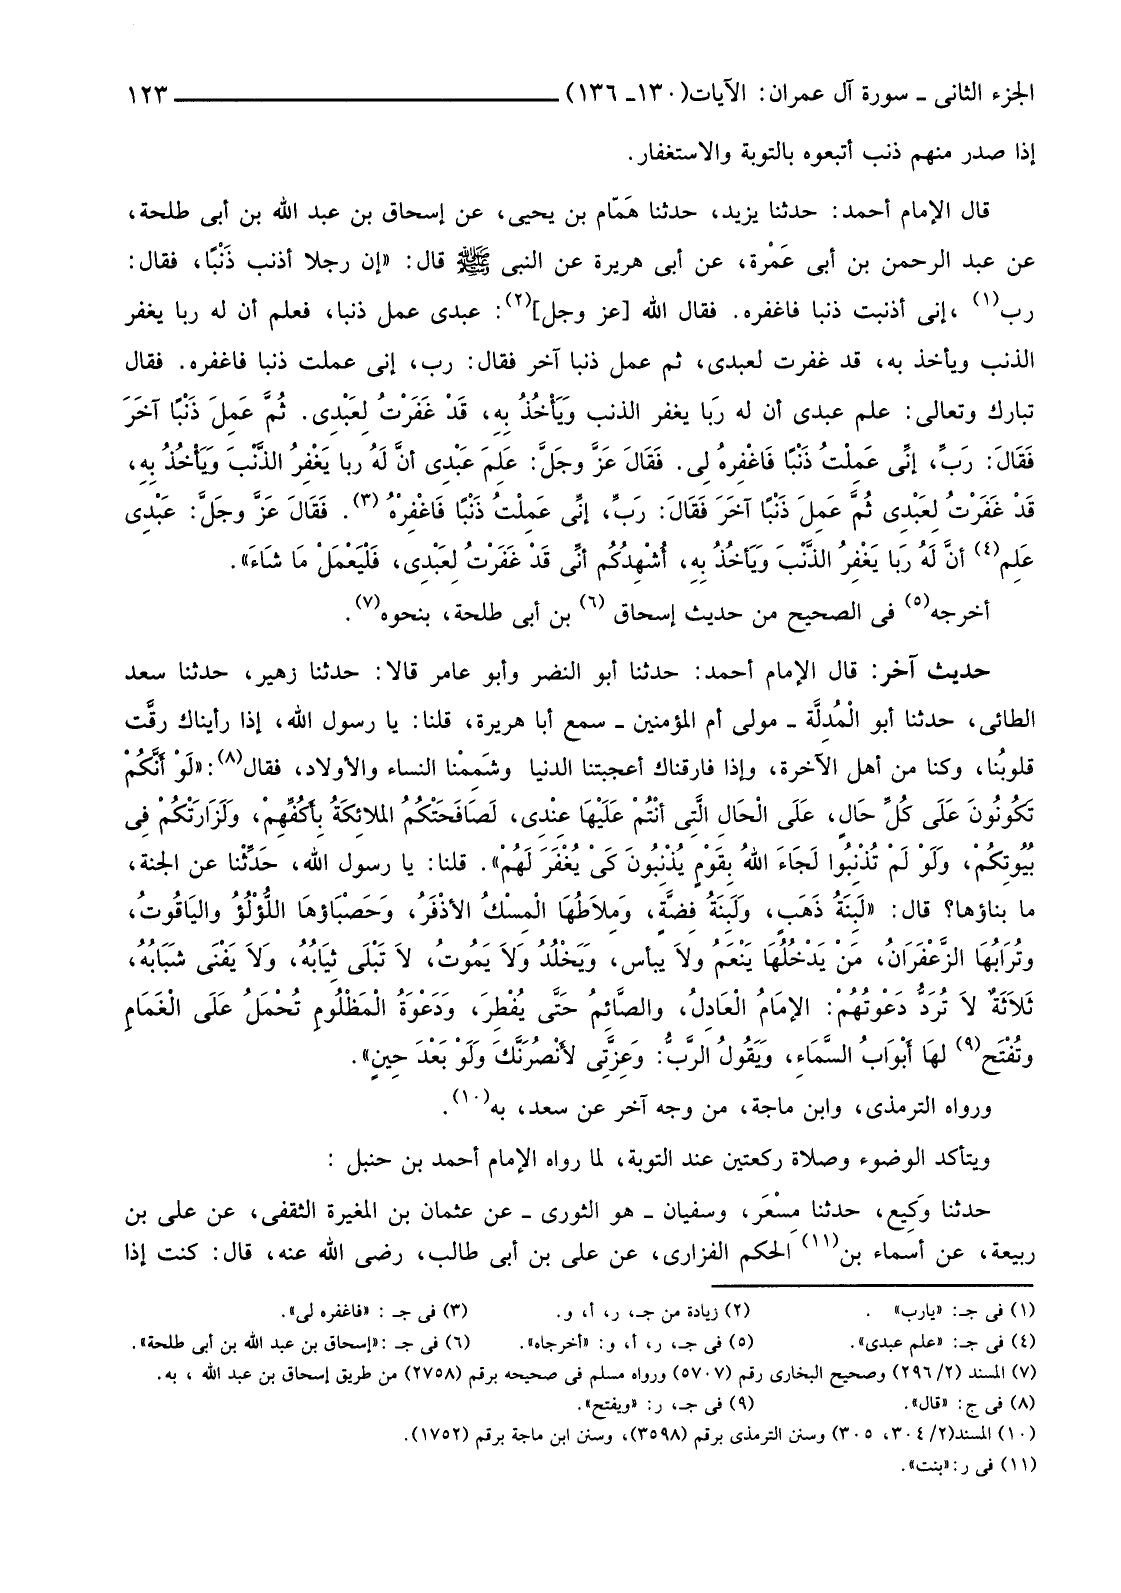 الجزء الثانى ـ سورة آل عمران: الآيات(١٣٠ـ ١٣٦) ـــــــــــــــــــــــــــــــــ ١٢٣
إذا صدر منهم ذنب أتبعوه بالتوبة والاستغفار.
قال الإمام أحمد: حدثنا يزيد، حدثنا هَمّام بن يحيى، عن إسحاق بن عبد الله بن أبى طلحة،
عن عبد الرحمن بن أبى عَمْرة، عن أبى هريرة عن النبى ﷺ قال: «إن رجلا أذنب ذَنْبًا، فقال:
رب(١) ،إنى أذنبت ذنبا فاغفره. فقال الله [عز وجل](٢): عبدى عمل ذنبا، فعلم أن له ربا يغفر
الذنب ويأخذ به، قد غفرت لعبدى، ثم عمل ذنبا آخر فقال: رب، إنى عملت ذنبا فاغفره. فقال
تبارك وتعالى: علم عبدى أن له رَبا يغفر الذنب وَيَأْخُذُ بِهِ، قَدْ غَفَرْتُ لِعَبْدِى. ثُمَّ عَمِلَ ذَنْبًا آخَرَ
فَقَالَ: رَبِّ، إنِّى عَمِلْتُ ذَنْبًا فَاغْفِرهُ لِى. فَقَالَ عَزَّ وجَلَّ: عَلِمَ عَبْدِى أنَّ لَهُ ربا يَغْفِرُ الذَّنْبَ وَيَأْخُذُ بِهِ،
قَدْ غَفَرْتُ لِعَبْدِى ثُمَّ عَمِلَ ذَنْبًا آخَرَ فَقَالَ: رَبِّ، إنِّى عَمِلْتُ ذَنْبًا فَاغْفِرْهُ (٣). فَقَالَ عَزَّ وجَلَّ: عَبْدِى
عَلِم(٤) أنَّ لَهُ رَبا يَغْفِرُ الذَّنْبَ وَيَأخُذُ بِهِ، أُشْهِدُكُم أنِّى قَدْ غَفَرْتُ لِعَبْدِى، فَلْيَعْمَلْ مَا شَاءَ».
أخرجه(٥) فى الصحيح من حديث إسحاق (٦) بن أبى طلحة، بنحوه(٧).
حديث آخر: قال الإمام أحمد: حدثنا أبو النضر وأبو عامر قالا: حدثنا زهير، حدثنا سعد
الطائى، حدثنا أبو الْمُدِلَّة ـ مولى أم المؤمنين ـ سمع أبا هريرة، قلنا: يا رسول الله، إذا رأيناك رقَّت
قلوبُنا، وكنا من أهل الآخرة، وإذا فارقناك أعجبتنا الدنيا وشَمِمْنا النساء والأولاد، فقال(٨):«لَوْ أَنَّكُمْ
تَكُونُونَ عَلَى كُلِّ حَالٍ، عَلَى الْحَالِ الَّتِى أنْتُمْ عَلَيْهَا عِنْدِى، لَصَافَحَتْكُمُ الملائِكَةُ بِأَكُفِّهِمْ، ولَزَارَتْكُمْ فِى
بُيُوتِكُمْ، وَلَوْ لَمْ تُذْنِبُوا لَجَاءَ اللهُ بِقَوْمٍ يُذْنِبُونَ كَىْ يُغْفَرَ لَهُمْ». قلنا: يا رسول الله، حَدِّثْنا عن الجنة،
ما بناؤها؟ قال: «لَبِنَةُ ذَهَبٍ، وَلَبِنَةُ فِضَّةٍ، وَمِلاَطُهَا الْمِسْكُ الأذْفَرُ، وَحَصْبَاؤهَا اللُّؤْلُؤُ واليَاقُوتُ،
وتُرَابُهَا الزَّعْفَرَانُ، مَنْ يَدْخُلُهَا يَنْعَمُ ولاَ يبأس، وَيَخْلُدُ وَلاَ يَمُوتُ، لاَ تَبْلَى ثِيَابُهُ، وَلاَ يَفْنَى شَبَابُهُ،
ثَلاَثَةٌ لاَ تُرَدُّ دَعْوتُهُمْ: الإمَامُ الْعَادِلُ، والصَّائِمُ حَتَّى يُفْطِرَ، ودَعْوَةُ الْمَظْلُومِ تُحْمَلُ عَلَى الْغَمَامِ
وتُفْتَح(٩) لهَا أَبْوَابُ السَّمَاءِ، وَيَقُولُ الرَّبُّ: وَعِزَّتِى لأنْصُرَنَّكَ وَلَوْ بَعْدَ حِينٍ».
ورواه الترمذى، وابن ماجة، من وجه آخر عن سعد، به(١٠).
ويتأكد الوضوء وصلاة ركعتين عند التوبة، لما رواه الإمام أحمد بن حنبل :
حدثنا وَكِيع، حدثنا مِسْعَر، وسفيان ـ هو الثورى ـ عن عثمان بن المغيرة الثقفى، عن على بن
ربيعة، عن أسماء بن(١١) الحكم الفزارى، عن على بن أبى طالب، رضى الله عنه، قال: كنت إذا
(١) فى جـ: «يارب» . (٢) زيادة من جـ، ر، أ، و. (٣) فى جـ : «فاغفره لى».
(٤) فى جـ: «علم عبدى». (٥) فى جـ، ر، أ، و: «أخرجاه». (٦) فى جـ :«إسحاق بن عبد الله بن أبى طلحة».
(٧) المسند (٢/ ٢٩٦) وصحيح البخارى رقم (٥٧٠٧) ورواه مسلم فى صحيحه برقم (٢٧٥٨) من طريق إسحاق بن عبد الله ، به.
(٨) فى ج: «قال». (٩) فى جـ، ر: «ويفتح».
(١٠) المسند(٢/ ٣٠٤، ٣٠٥) وسنن الترمذى برقم (٣٥٩٨)، وسنن ابن ماجة برقم (١٧٥٢).
(١١) فى ر:«بنت».